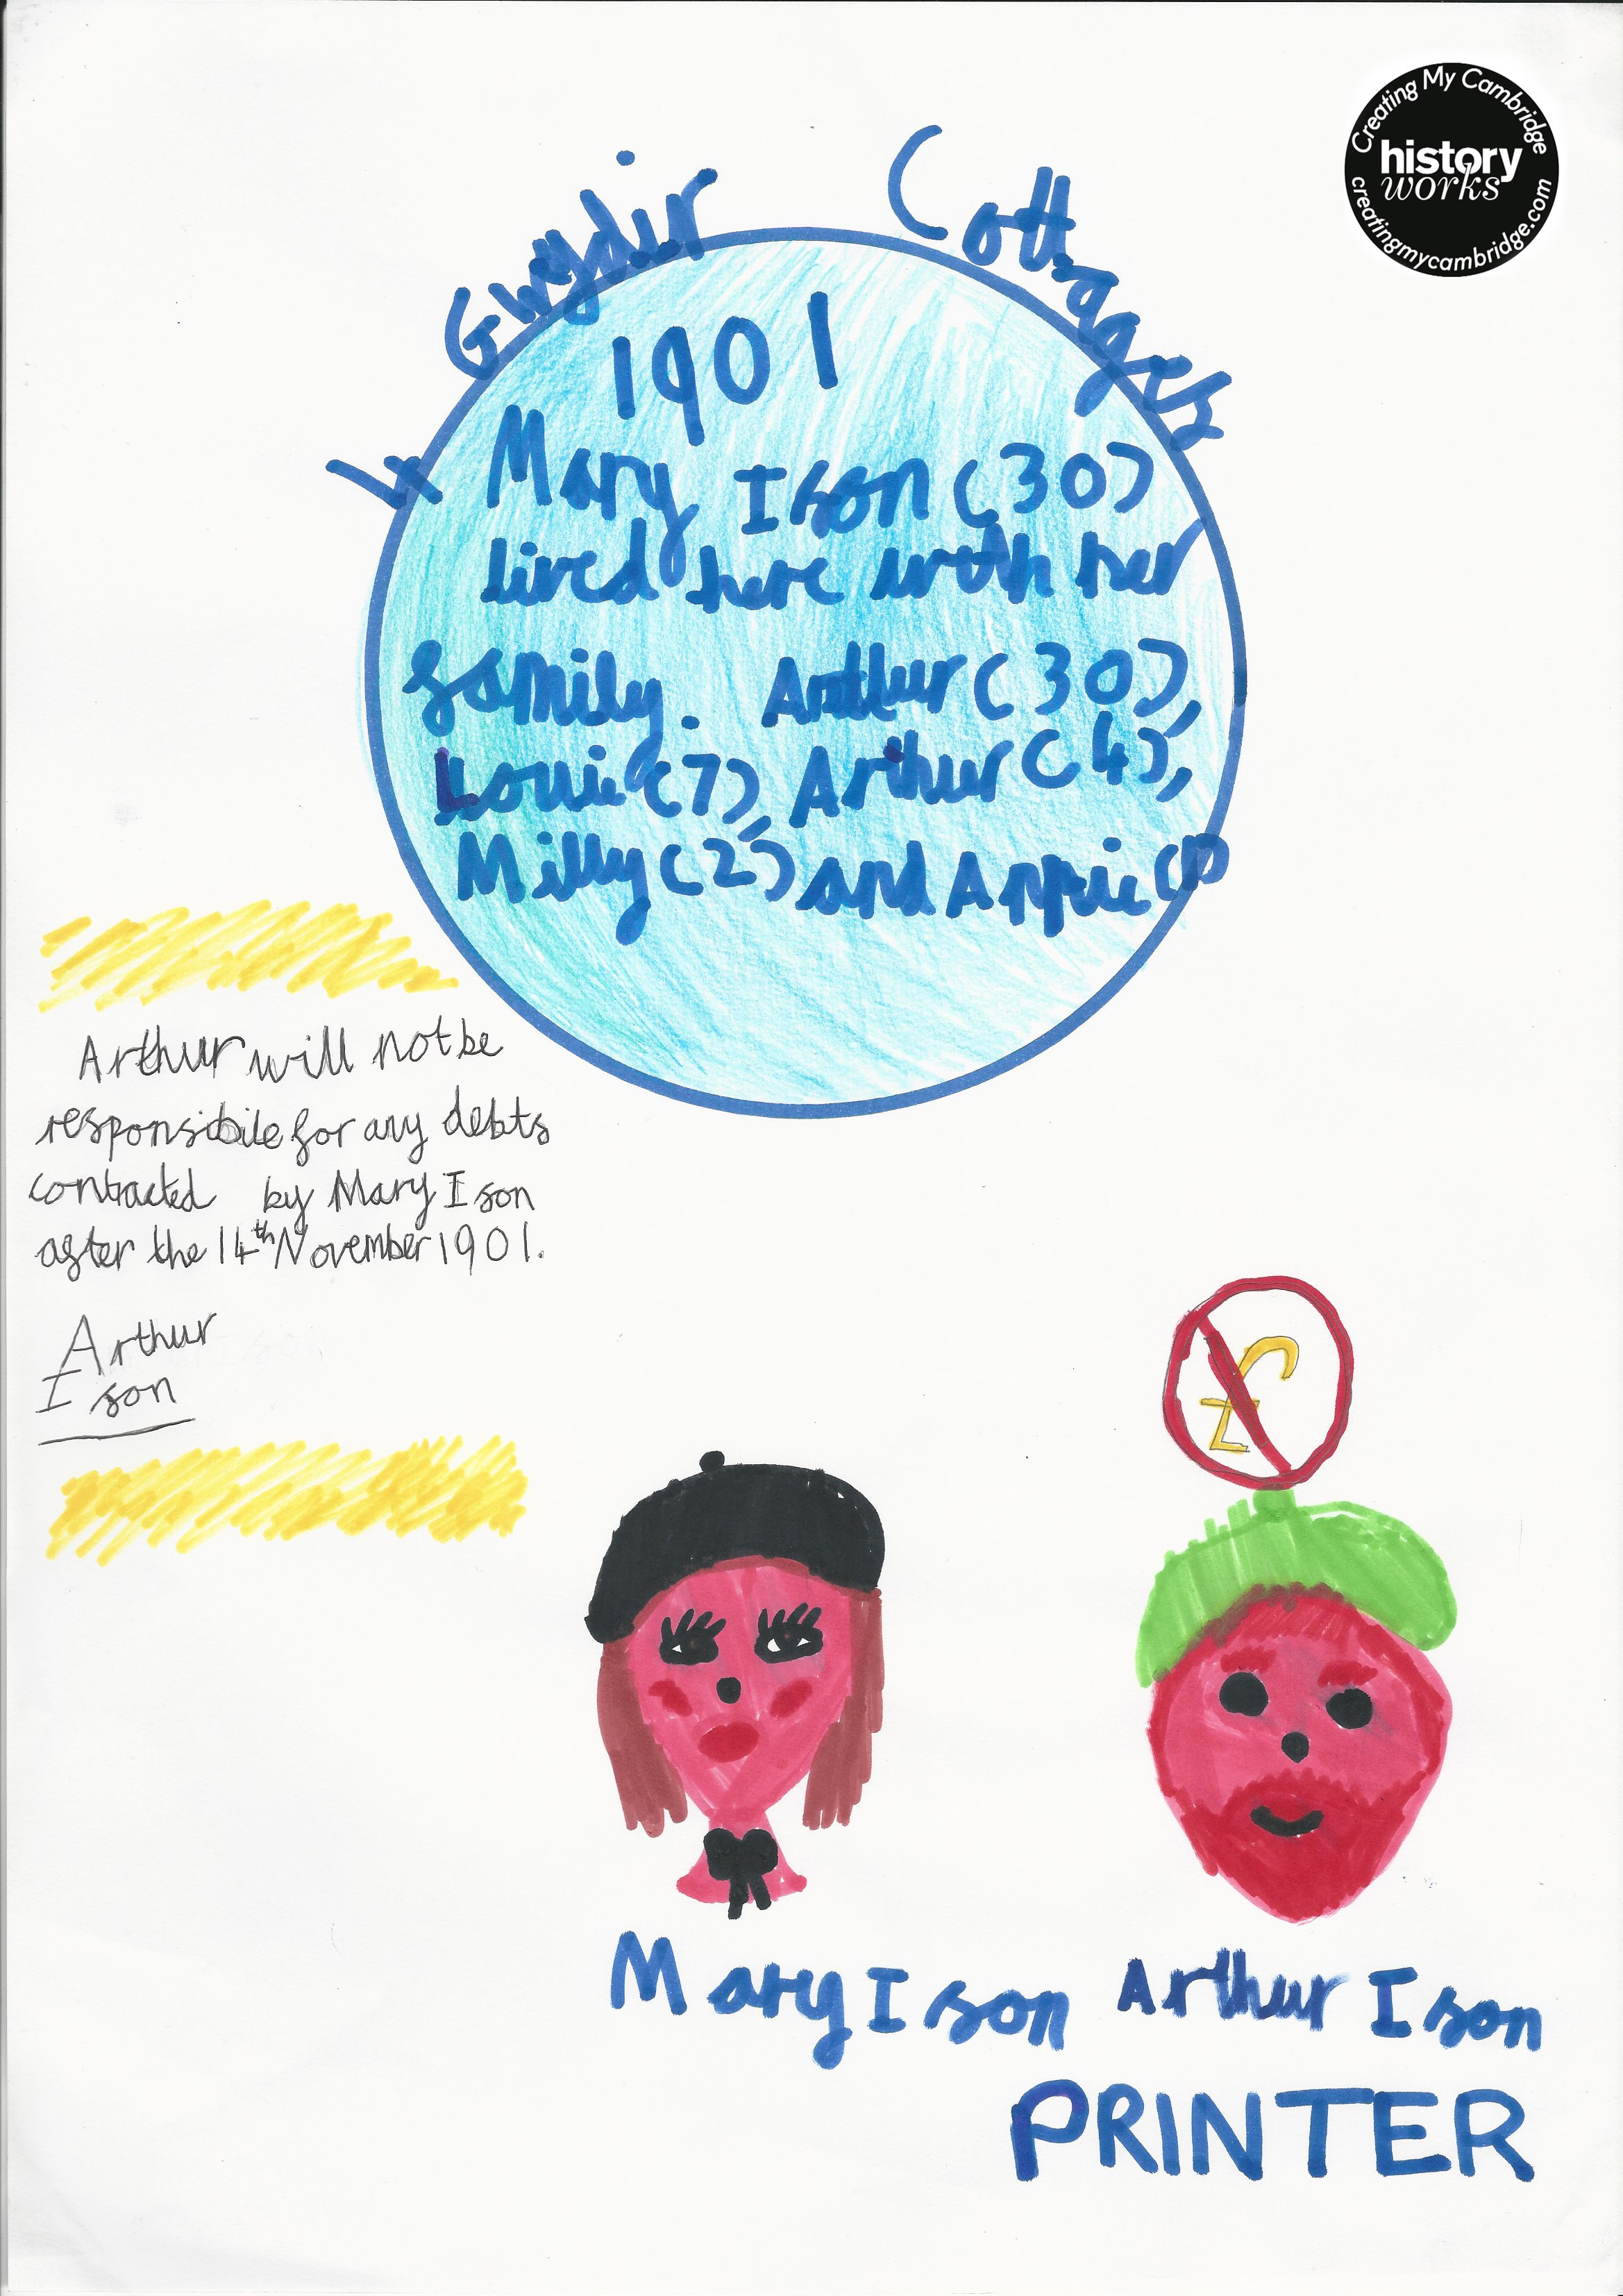 Creating My Cambridge
history
works
creatingmycambridge.com
4 Gwydir Cottages
1901
Mary Ison (30)
lived here with her
family. Arthur (30),
Louie (7), Arthur (4),
Milly (2) and Annie (1)
Arthur will not be
responsibile for any debts
contracted by Mary Ison
after the 14th November 1901.
Arthur
Ison
£
Mary Ison Arthur Ison
PRINTER